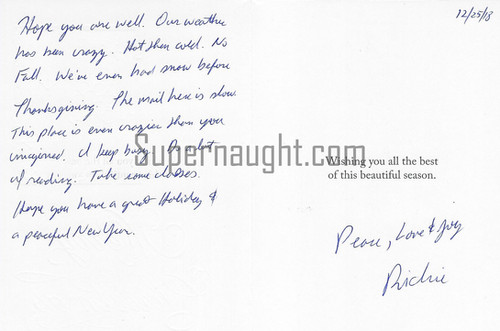 12/25/18
Hope you are well. Our weather
has been crazy. Hot then cold. No
Fall. We've even had snow before
Thanksgiving. The mail here is slow.
This place is even crazier than you
imagined. I keep busy. Do a lot
of reading. Take some classes.
Hope you have a great Holiday &
a peaceful New Year.
Supernaught.com
Wishing you all the best
of this beautiful season.
Peace, Love & Joy
Richie